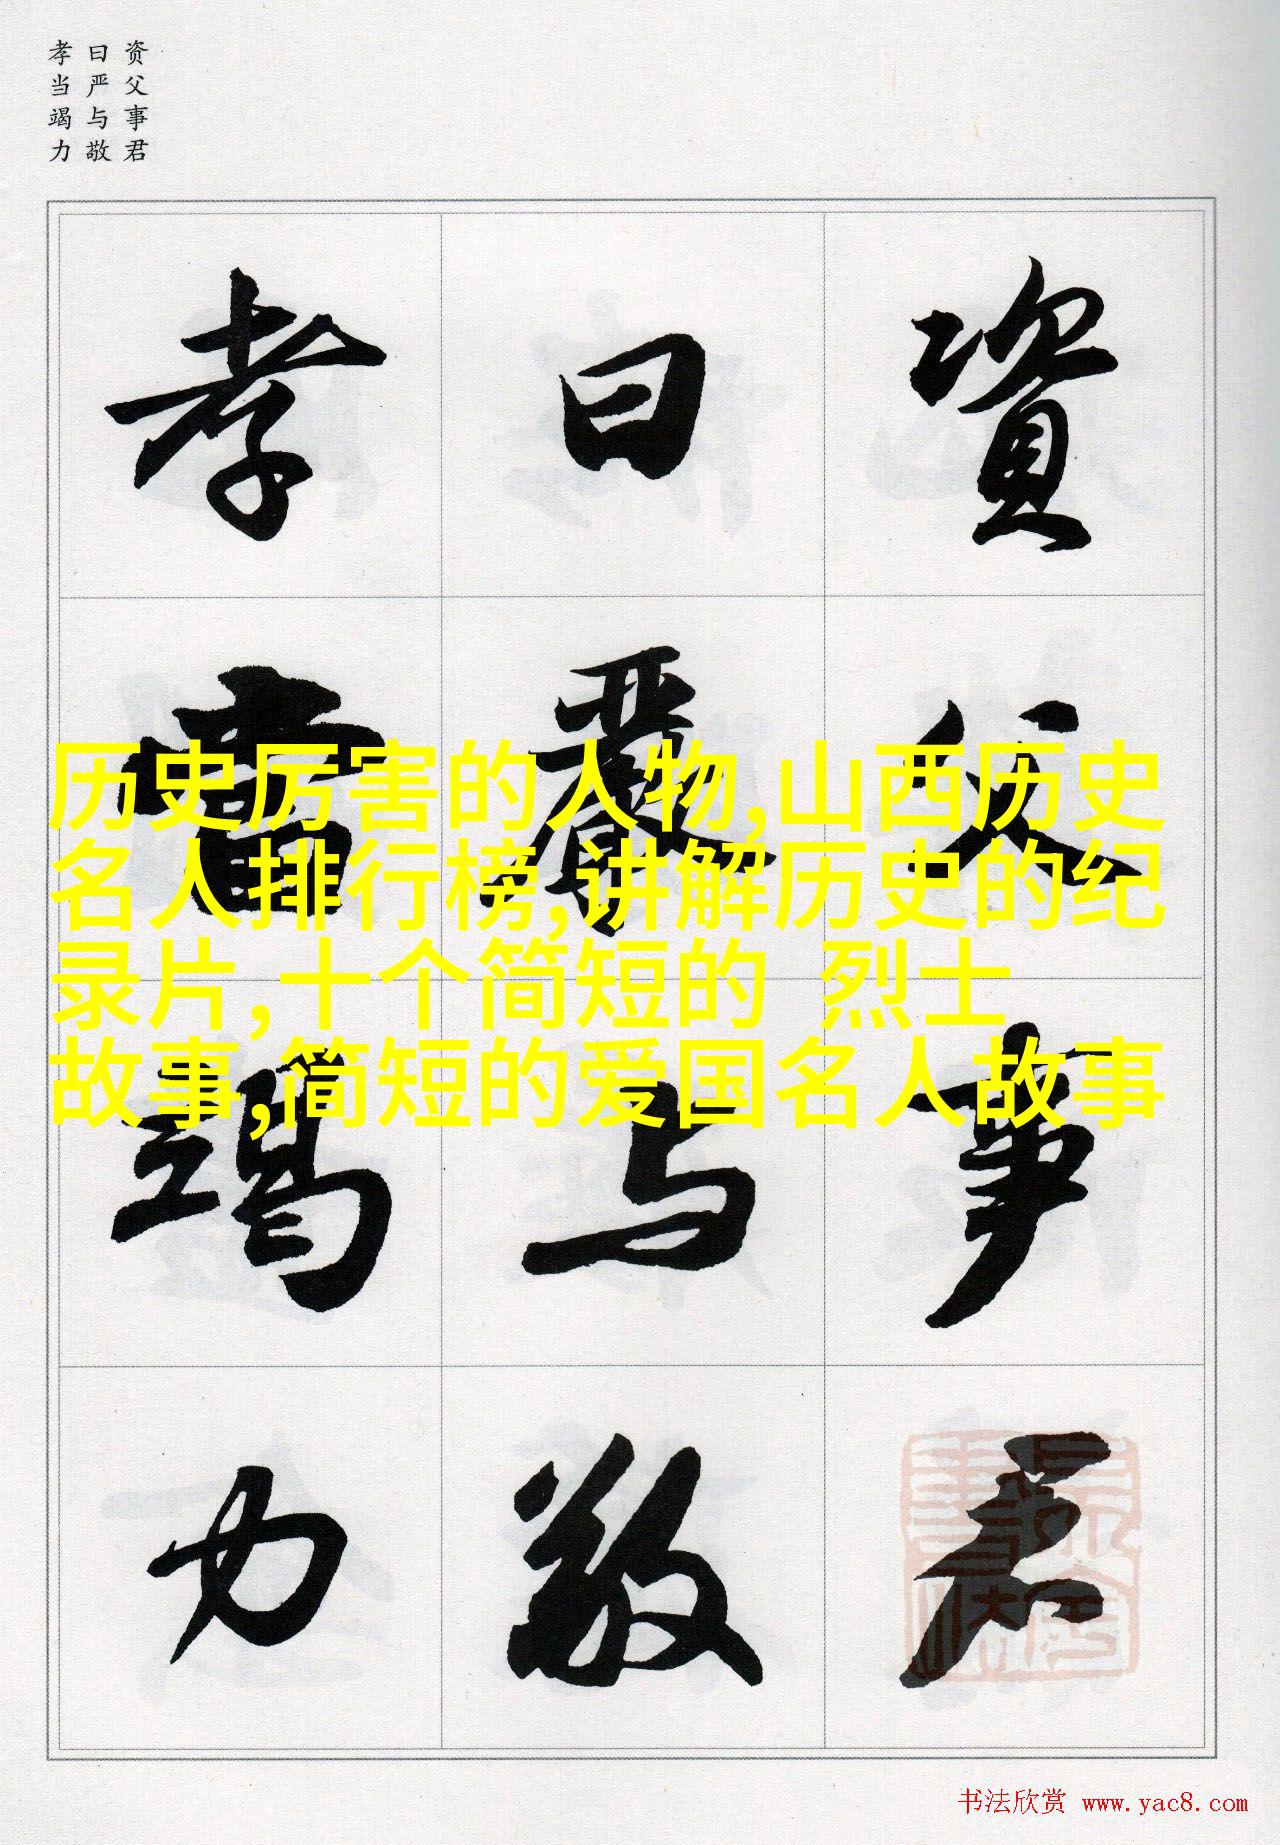 资父事君
曰严与敬
孝当竭力
資父事君
曰嚴与敬
孝當竭力
历史厉害的人物,山西历史
名人排行榜,讲解历史的纪
录片,十个简短的 烈士
故事,简短的爱国名人故事
书法欣赏 www.yac8.com